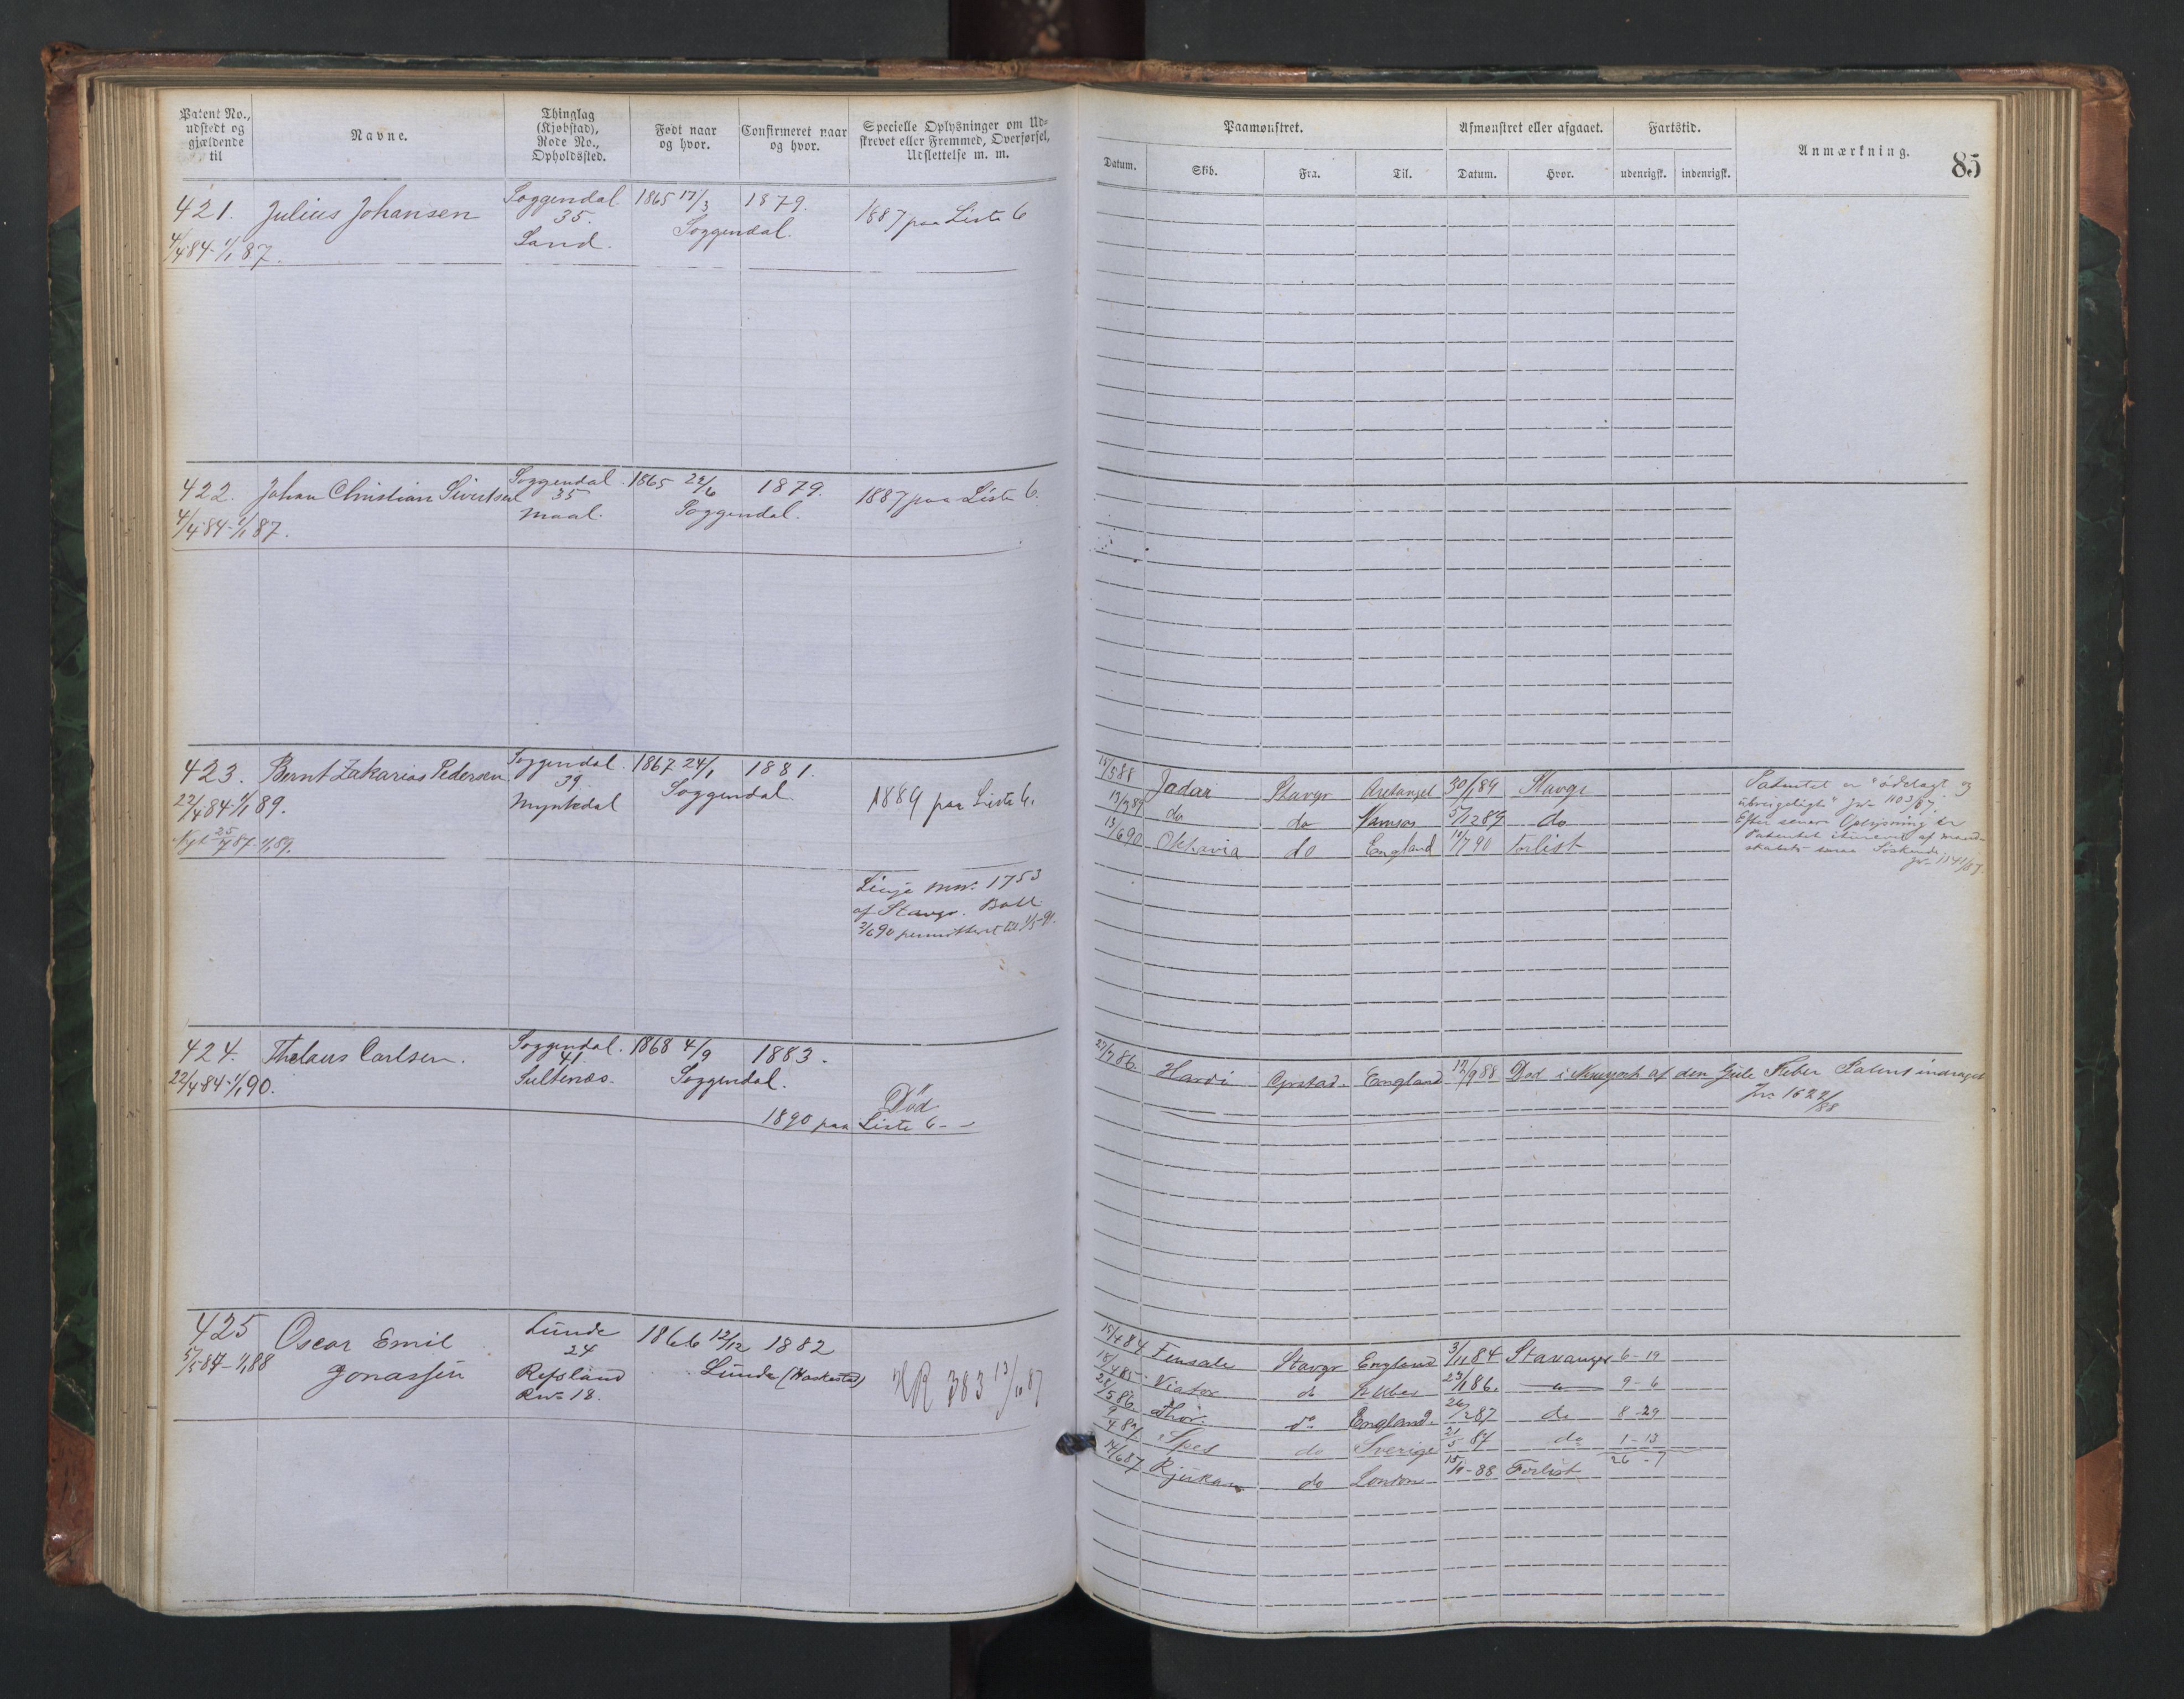 Patent No., udstedt og gjældende til
Navne.
Thinglag (Kjøbstad), Rode No., Opholdssted.
Født naar og hvor.
Confirmeret naar og hvor.
Specielle Oplysninger om Udskrevet eller Fremmed, Overførsel, Udslettelse m. m.
Paamønstret.
Afmønstret eller afgaaet.
Fartstid.
Anmærkning.
85
Datum.
Skib.
Fra.
Til.
Datum.
Hvor.
udenrigsk.
indenrigsk.
421. Julius Johansen Soggendal 1865 17/3 1879. 1887 paa Liste 6
35. Soggendal.
4/4 84-1/1 87. Sand.
422. Johan Christian Sivertsen Soggendal. 1865 22/6 1879. 1887 paa Liste 6.
35 Soggendal.
4/4 84-1/1 87. Maal.
423. Bernt Zakarias Pedersen Soggendal. 1867 24/1 1881.
39 Soggendal.
22/4 84-1/1 89. Myntedal 1889 paa Liste 6.
Nyt 25/7 87-1/1 89.
Linje mnr. 1753
af Stavgr. Batl.
2/6 90 permitteret til 1/5-91.
15/5 88 Jadar Stavgr 30/1 89 Stavgr
13/3 89 do do Namsos 5/12 89 do
13/6 90 Oktavia do England 10/7 90 Forlist
Patentet er "ødelagt og
ubrugeligt" jnr. 1103/87.
Efter senere Oplysning er
Patentet itureven af mand-
skabets Søskende
jnr. 1141/87.
424. Thelaus Carlsen. Soggendal. 1868 4/9 1883.
41. Soggendal.
22/4 84-1/1 90. Sultenæs.
Død
1890 paa Liste 6
27/7 86. Hardi Egrstad. England 12/9 88 Død i Newyork af den Gule Feber Patent indraget
Jnr. 1622/88
425 Oscar Emil Lunde 1866 12/12 1882
24 Lunde (Haskestad)
5/5 84-1/1 88 Jonassen Refsland
Rno 18.
HR 383 13/10 87
15/4 84 Finsale Stavgr England 3/11 84 Stavanger 6-19
15/4 85 Viator do 23/1 86. " 9-6
28/5 86. Thor. do England. 26/2 87 do 8-29
9/4 87. Spes do Sverige 21/5 87 do 1-13
26-7
14/6 87 Rjukan do London 15/11-88 Forlist